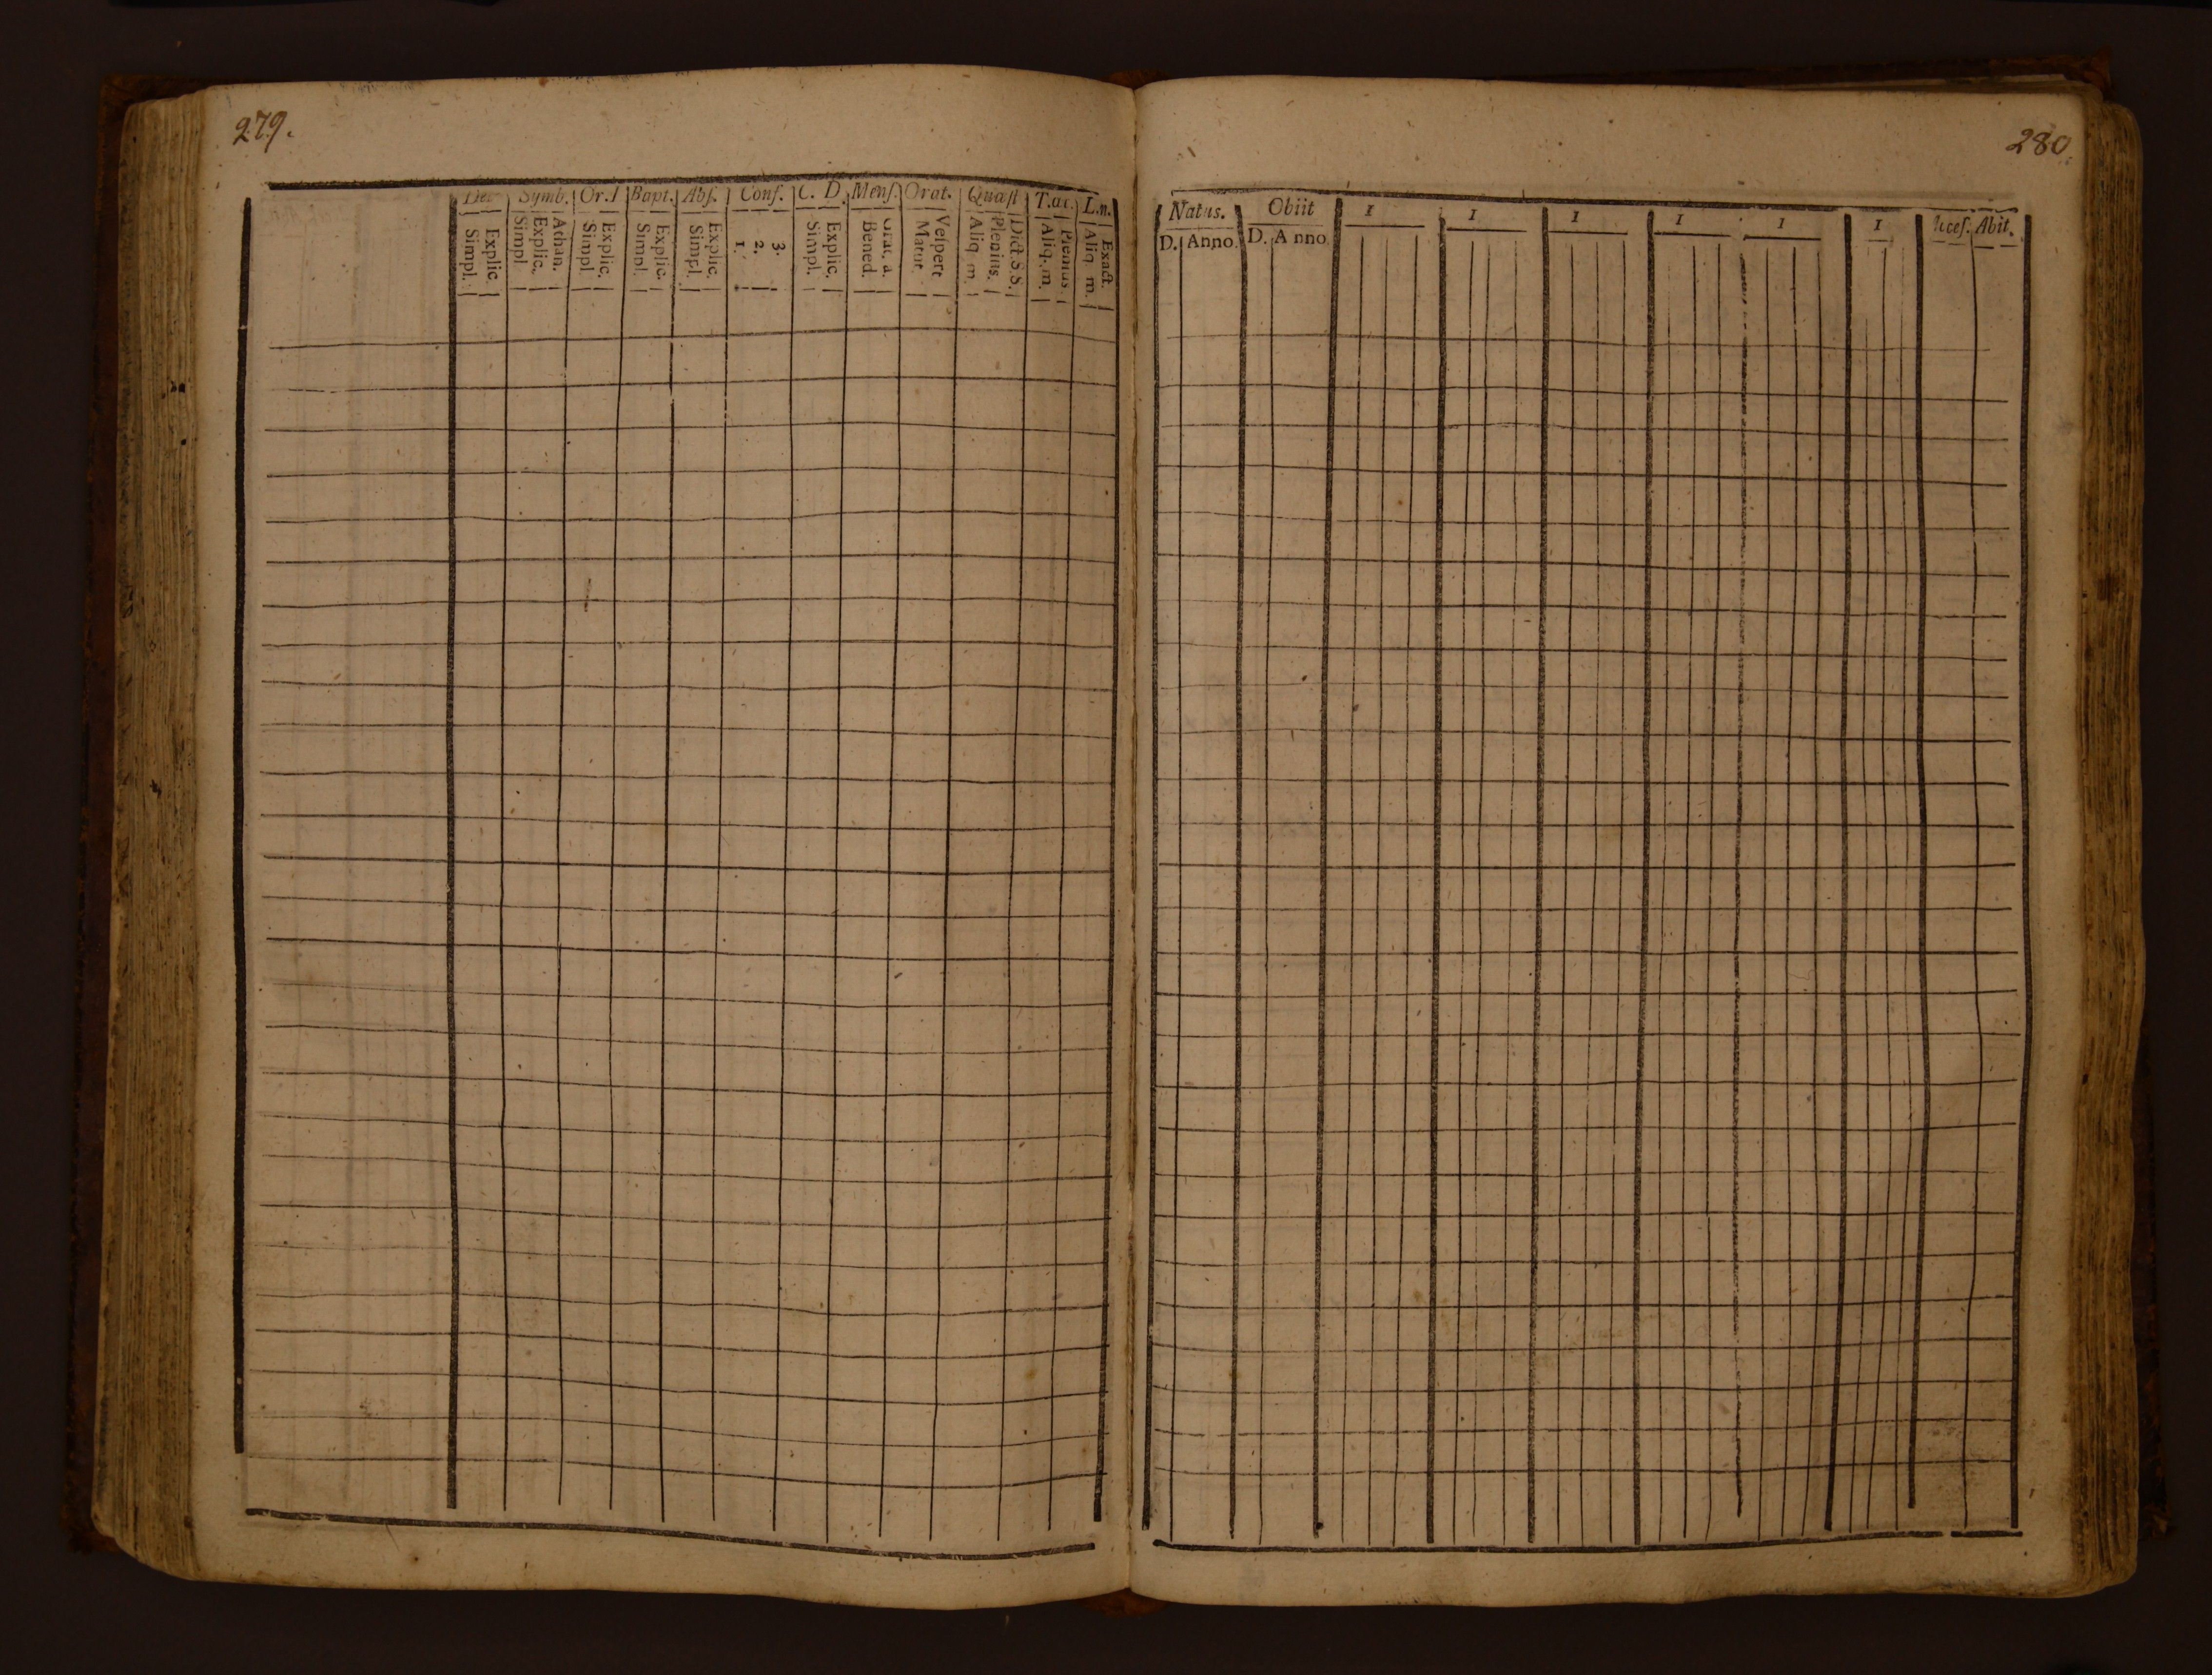 279.
280
Dec Symb. Or.D Bapt. Abſ. Conf. C. D. Menſ. Orat. Quæſt T.ac. L.n.
Explic. Simpl.
Athan. Explic. Simpl
Explic. Simpl.
Explic. Simpl.
Explic. Simpl.
3. 2. 1.
Explic. Simpl.
Grat. a. Bened.
Veſpert Matut.
Dict.S.S. Plenius. Aliq. m.
Plenius. Aliq. m.
Exact. Aliq m.
Natus. Obiit I I I I I I Acceſ. Abit.
D. Anno. D. A nno